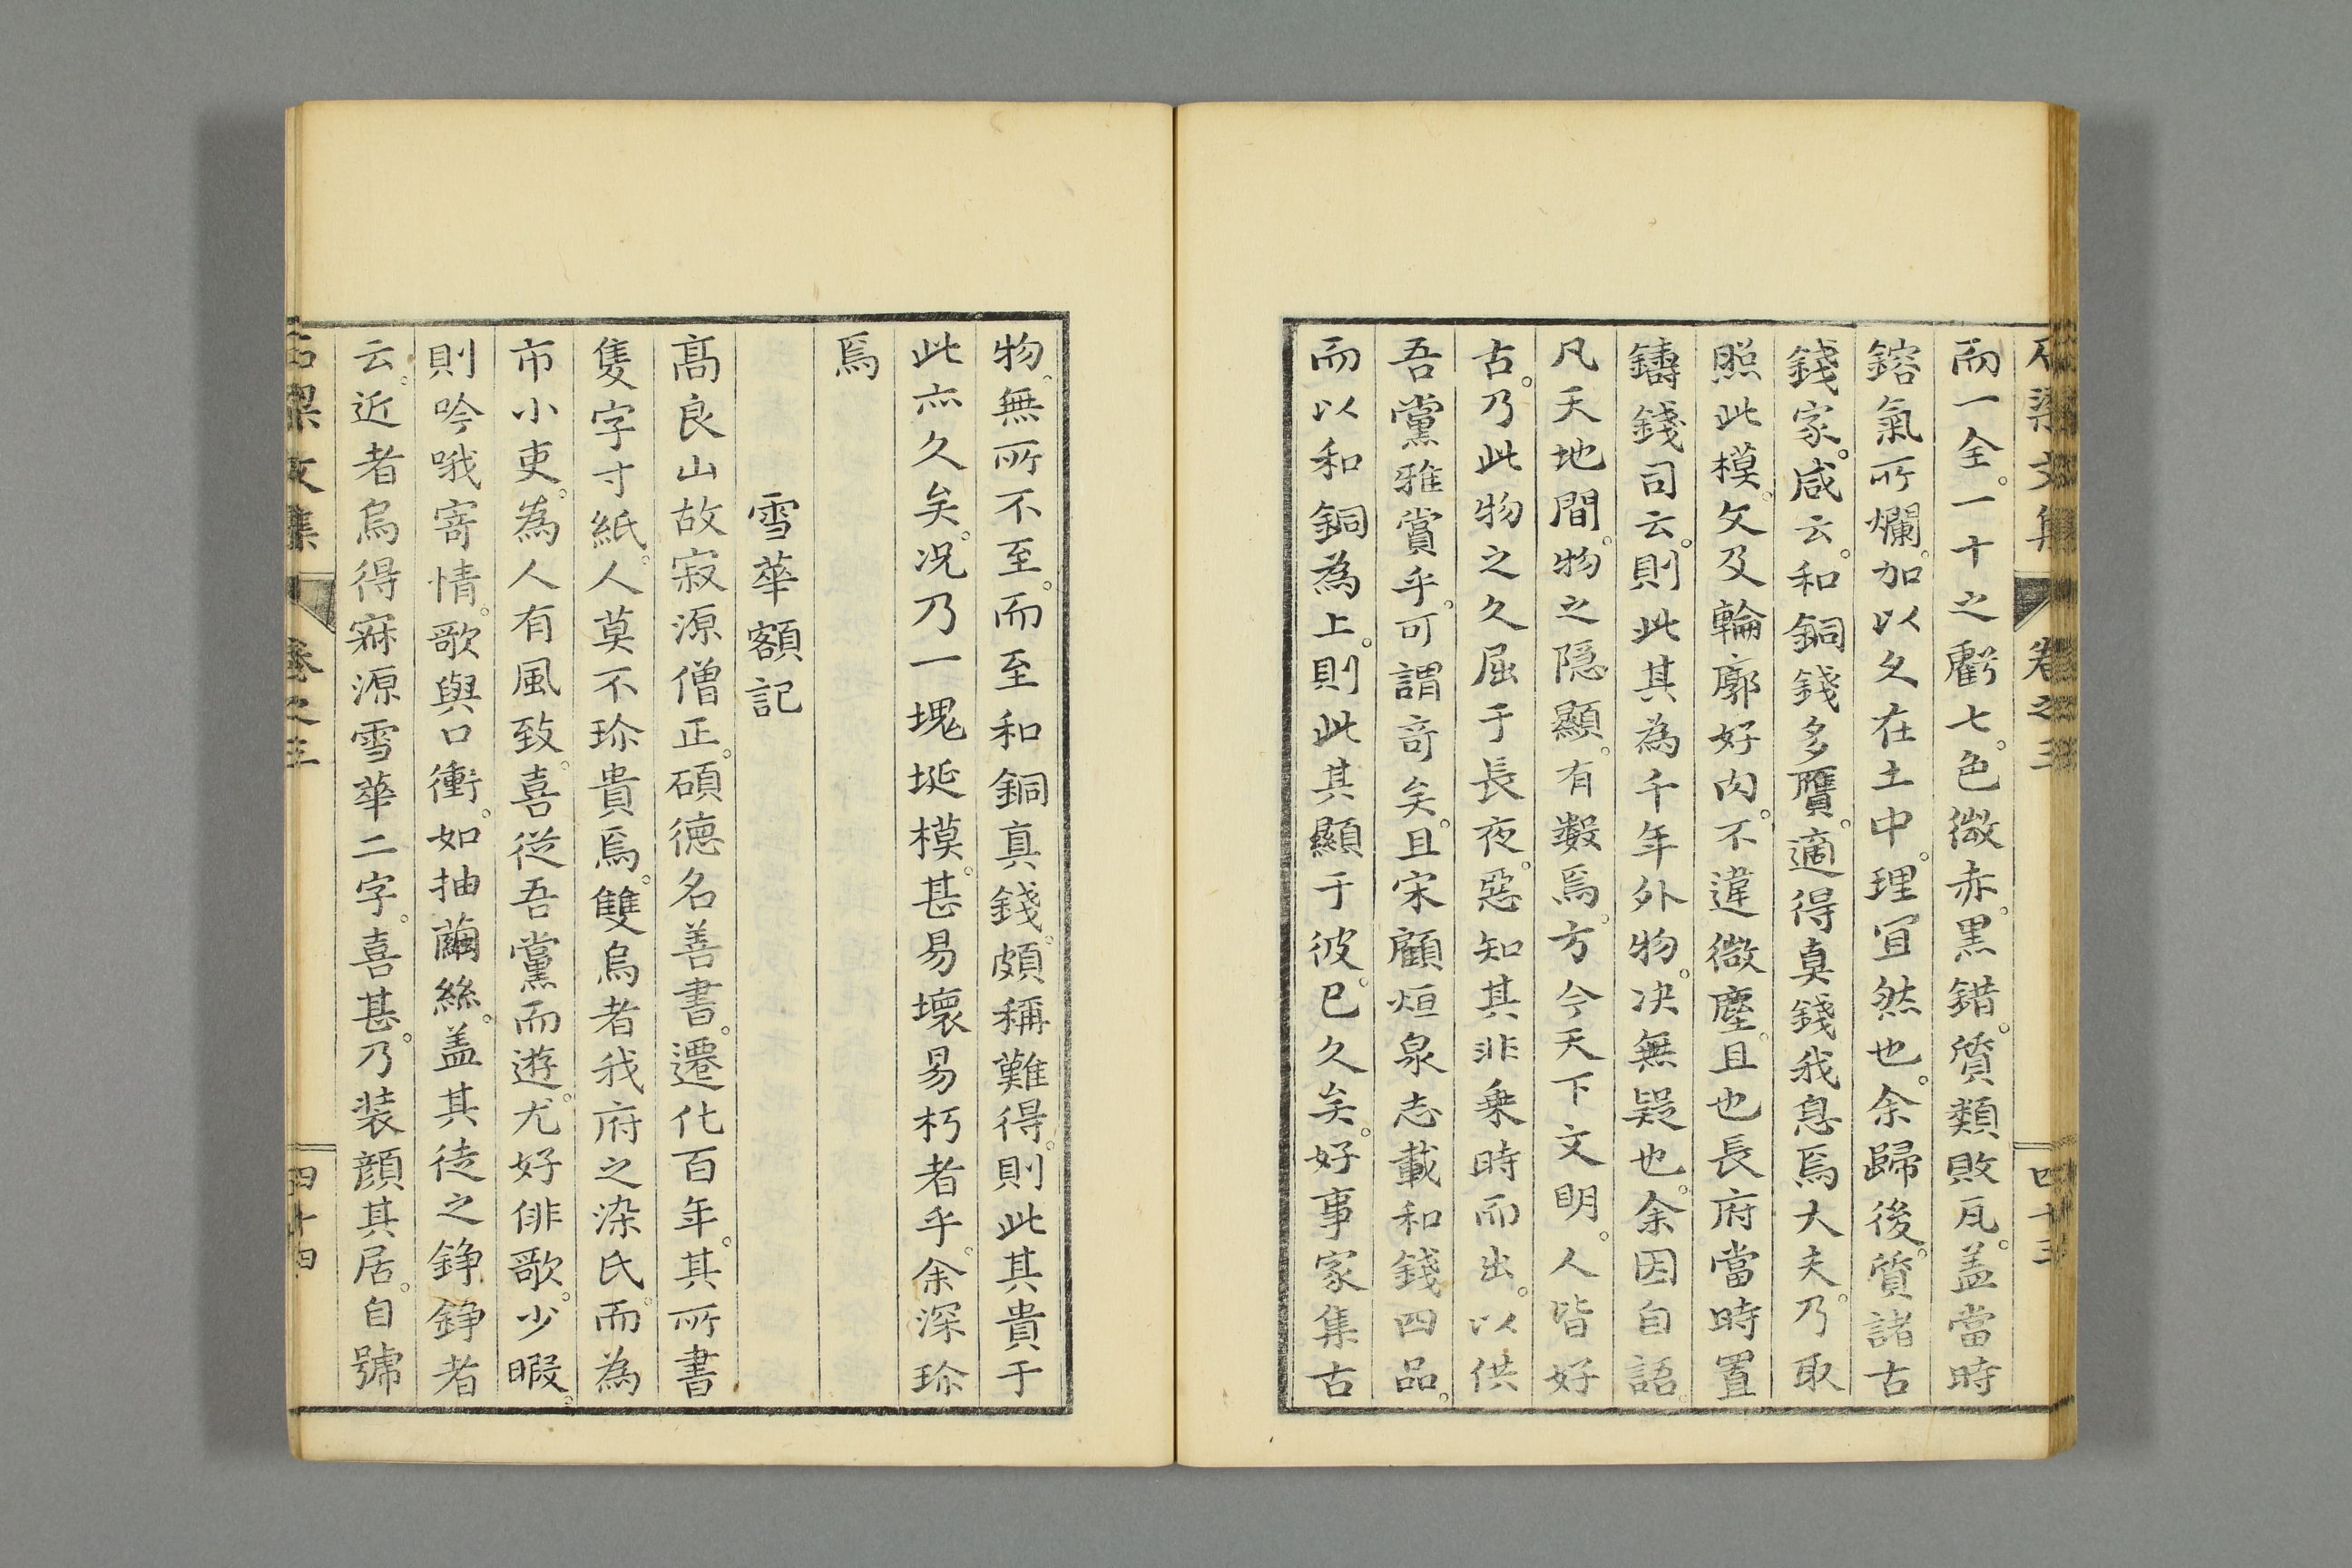 石梁文集 卷之三 四十三
而一全。一十之虧七。色微赤。黒錯。質類敗瓦。盖當時
鎔氣所爛。加以久在土中。理宜然也。余歸後。質諸古
錢家。咸云。和銅錢多贋。適得真錢我息焉大夫。乃取
照此模。文及輪廓好内。不違微塵。且也長府當時置
鑄錢司云。則此其為千年外物。决無疑也。余因自語。
凡天地間。物之隠顯。有數焉。方今天下文明。人皆好
古。乃此物之久屈于長夜。惡知其非乗時而出。以供
吾黨雅賞乎。可謂竒矣。且宋顧烜泉志載和錢四品。
而以和銅為上。則此其顯于彼。已久矣。好事家集古
物。無所不至。而至和銅真錢。頗稱難得。則此其貴于
此亦久矣。况乃一塊埏模。甚易壞易朽者乎。余深珎
焉
雪華額記
髙良山故寂源僧正。碩德名善書。遷化百年。其所書
隻字寸紙。人莫不珎貴焉。雙烏者我府之染氏。而為
市小吏。為人有風致。喜從吾黨而遊。尤好俳歌。少暇。
則吟哦寄情。歌與口衝。如抽繭絲。盖其徒之錚錚者
云。近者烏得寐源雪華二字。喜甚。乃装顔其居。自號
石梁文集 卷之三 四十四